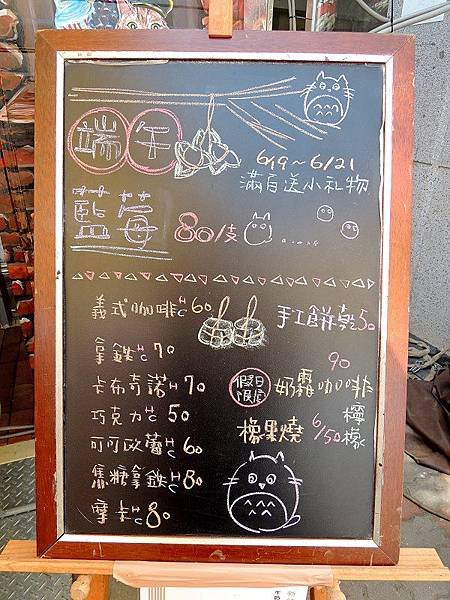 端午
6/19～6/21
滿百送小礼物
藍莓 80/支
義式咖啡 H C 60
手工餅乾 50
拿鉄 H C 70
卡布奇諾 H C 70
巧克力 H C 50
可可欧蕾 H C 60
焦糖拿鉄 H C 80
摩卡 H C 80
90
假日限定 奶霜咖啡
橡果燒 6/50
檸檬